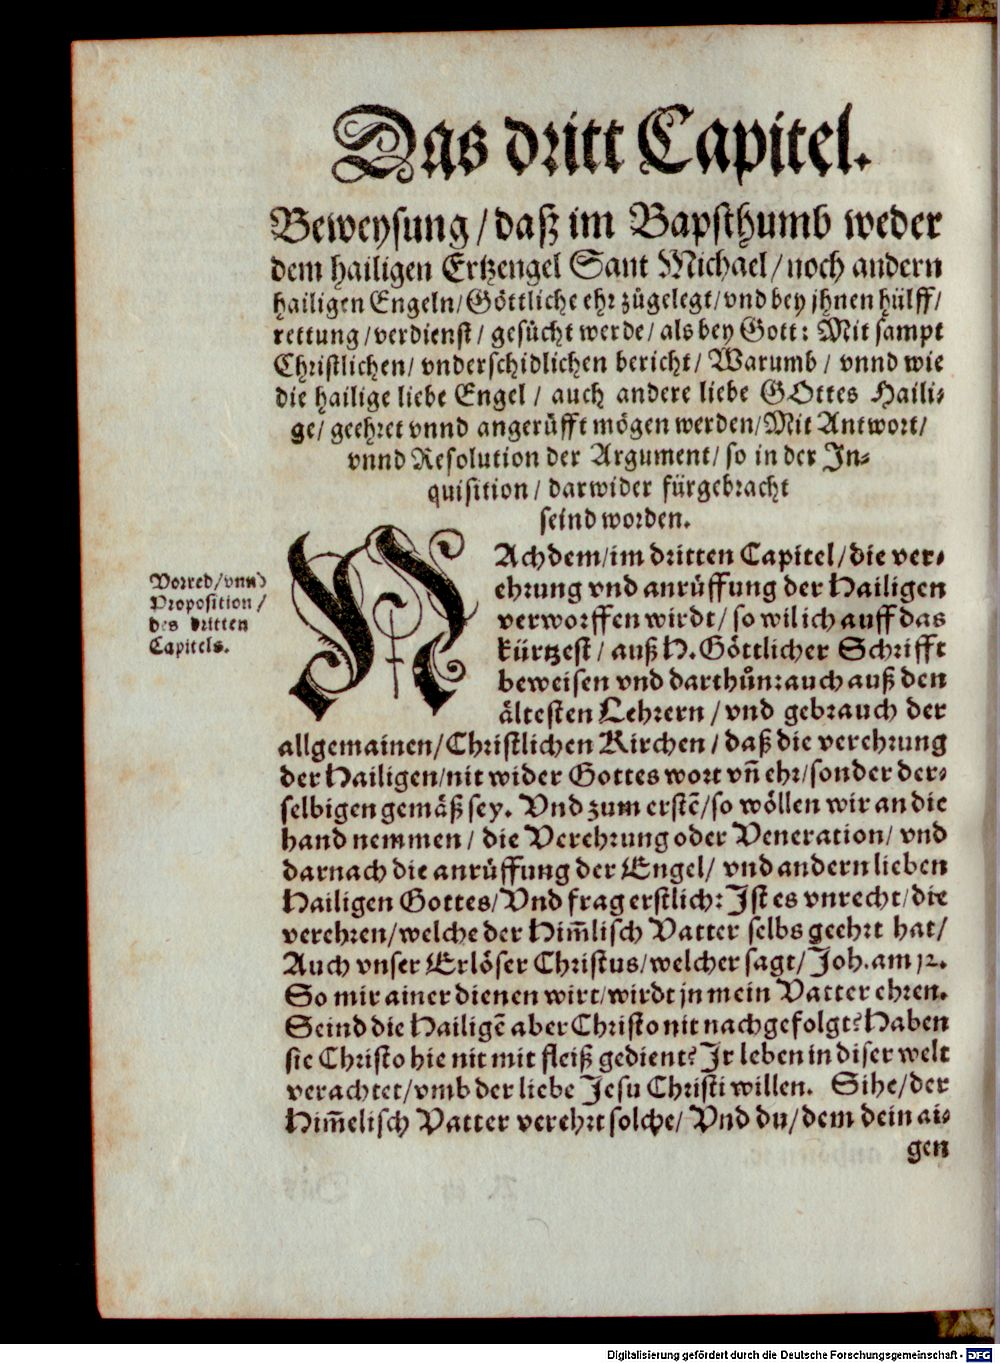 Das dritt Capitel.
Beweysung / daß im Bapsthumb weder
dem hailigen Ertzengel Sant Michael / noch andern
hailigen Engeln / Göttliche ehr zügelegt / vnd bey jhnen hülff /
rettung / verdienst / gesücht werde / als bey Gott: Mit sampt
Christlichen / vnderschidlichen bericht / Warumb / vnnd wie
die hailige liebe Engel / auch andere liebe GOttes Haili-
ge / geehret vnnd angerüfft mögen werden / Mit Antwort /
vnnd Resolution der Argument / so in der In-
quisition / darwider fürgebracht
seind worden.
Vorred / vnnd
Proposition /
des dritten
Capitels.
NAchdem / im dritten Capitel / die ver-
ehrung vnd anrüffung der Hailigen
verworffen wirdt / so wil ich auff das
kürtzest / auß H. Göttlicher Schrifft
beweisen vnd darthůn: auch auß den
ältesten Lehrern / vnd gebrauch der
allgemainen / Christlichen Kirchen / daß die verehrung
der Hailigen / nit wider Gottes wort vñ ehr / sonder der-
selbigen gemäß sey. Vnd zum erstẽ / so wöllen wir an die
hand nemmen / die Verehrung oder Veneration / vnd
darnach die anrüffung der Engel / vnd andern lieben
Hailigen Gottes / Vnd frag erstlich: Ist es vnrecht / die
verehren / welche der Him̃lisch Vatter selbs geehrt hat /
Auch vnser Erlöser Christus / welcher sagt / Joh. am 12.
So mir ainer dienen wirt / wirdt jn mein Vatter ehren.
Seind die Hailigẽ aber Christo nit nachgefolgt? Haben
sie Christo hie nit mit fleiß gedient? Jr leben in diser welt
verachtet / vmb der liebe Jesu Christi willen. Sihe / der
Him̃elisch Vatter verehrt solche / Vnd du / dem dein ai-
gen
Digitalisierung gefördert durch die Deutsche Forschungsgemeinschaft - DFG